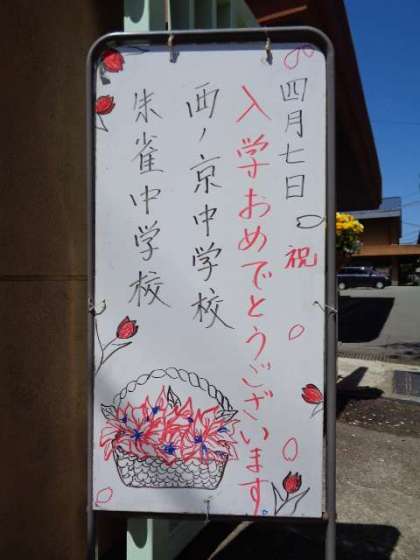 四月七日 祝
入学おめでとうございます。
西ノ京中学校
朱雀中学校